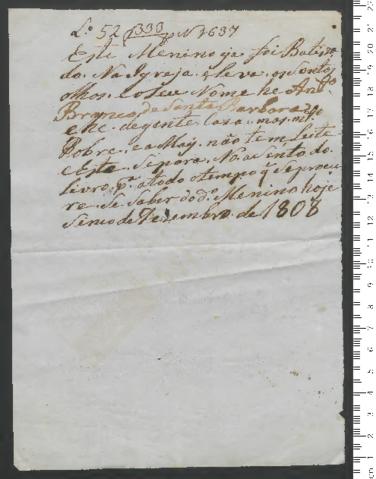 Lº 52 f 333 N 1637
Este Menino ja foi Batiza
do. Na Igreja eleva os Santos
olhos. eo Seu Nome he Antº
Branco, da Santa Barbara
e he. degente. Caza. mas. mto
Pobre. ea Maỹ não tem Leite
e Este. Separa. No aSento do
Livro. pª atodo otempo q Seprocu
re. de Saber do dº Menino hoje
Sinco de Dezembro de 1808